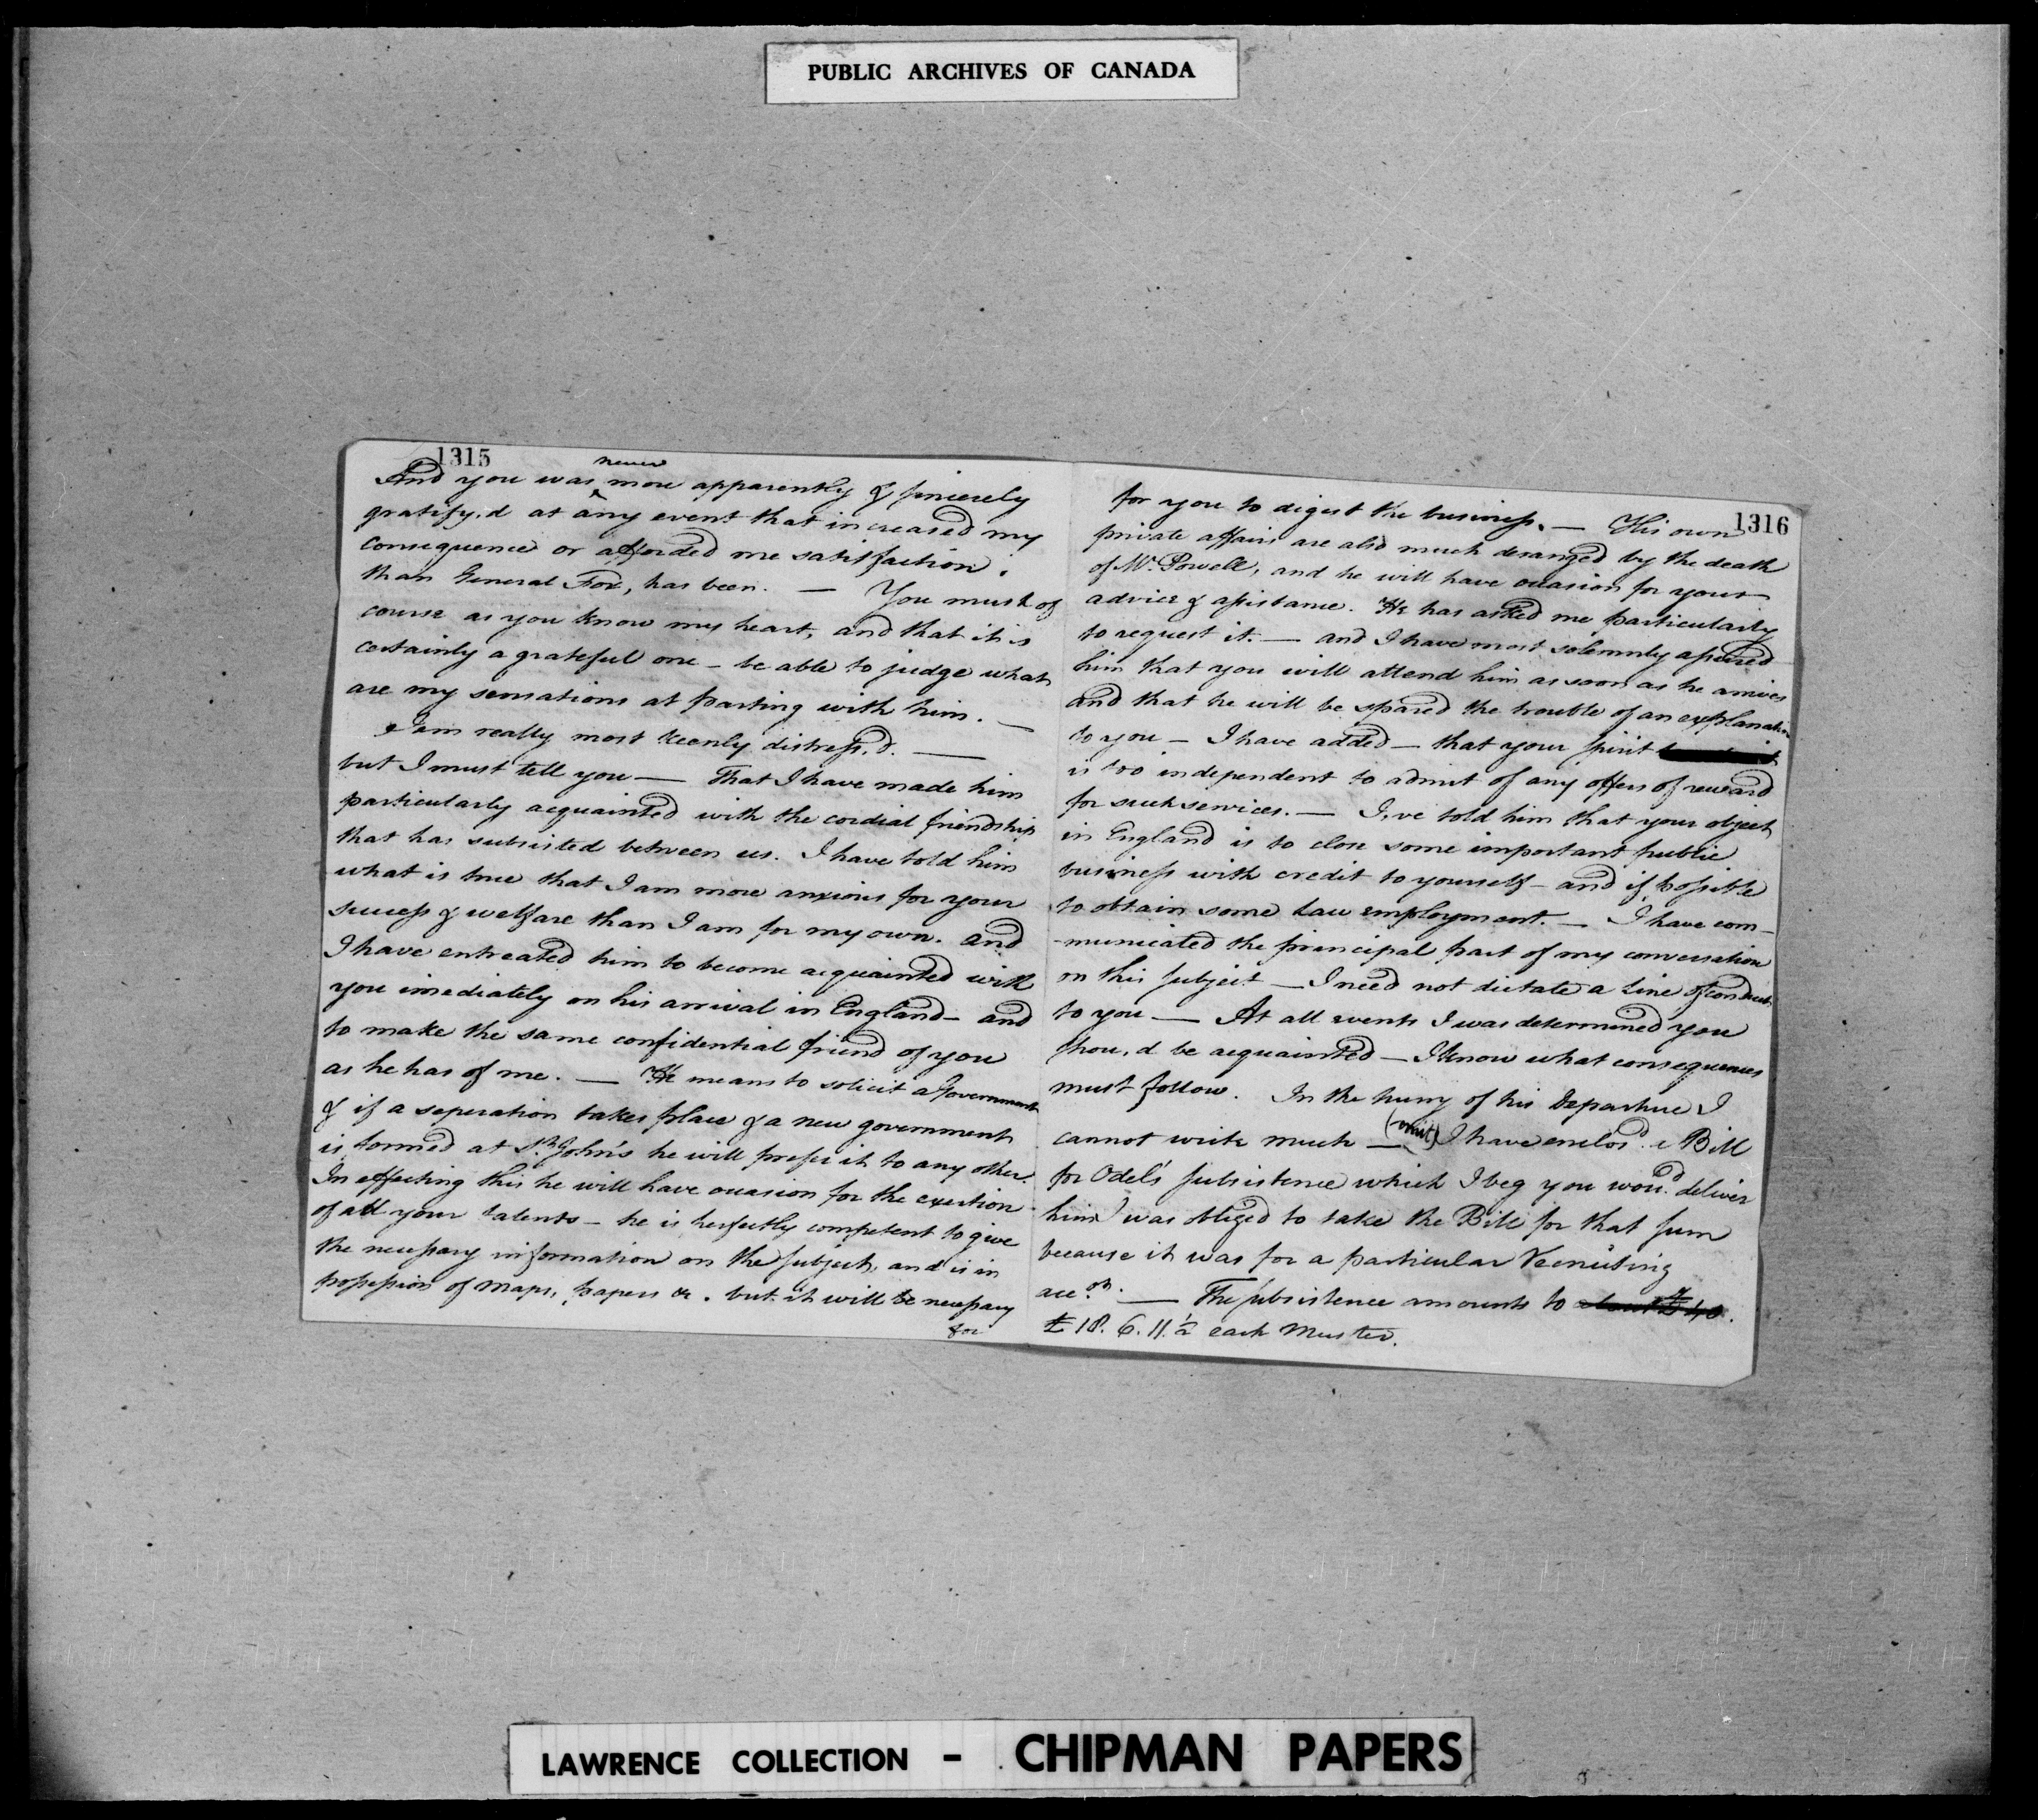 PUBLIC ARCHIVES OF CANADA
1315
never
And you was more apparently & sincerely
gratify.d at any event that increased my
consequence or afforded me satisfaction.
than General Fox, has been. — You must of
course as you know my heart, and that it is
certainly a grateful one – be able to judge what
are my sensations at parting with him. —
I am really most keenly distress.d. —
but I must tell you — That I have made him
particularly acquainted with the cordial friendship
that has subsisted between us. I have told him
what is true that I am more anxious for your
success & welfare than I am for my own. and
I have entreated him to become acquainted with
you imediately on his arrival in England – and
to make the same confidential friend of you
as he has of me. — He means to solicit a Government
& if a seperation takes place & a new government
is formed at St. John's he will prefer it to any other.
In effecting this he will have occasion for the exertion
of all your talents – he is perfectly competent to give
the necessary information on the subject, and is in
possession of maps, papers &c. but it will be necessary
for
1316
for you to digest the business. — His own
private affairs are also much deranged by the death
of Mr. Powell, and he will have occasion for your
advice & assistance. He has asked me particularly
to request it. — and I have most solemnly assured
him that you will attend him as soon as he arrives
and that he will be spared the trouble of an explanation
to you – I have added – that your spirit
is too independent to admit of any offers of reward
for such services. — I,ve told him that your object
in England is to close some important public
business with credit to yourself – and if possible
to obtain some Law employment. — I have com-
-municated the principal part of my conversation
on this subject — I need not dictate a line of conduct
to you — At all events I was determined you
shou,d be acquainted — I know what consequences
must follow. In the hurry of his Departure I
cannot write much — (omit) I have enclos'd a Bill
for Odel's subsistence which I beg you wou'd deliver
him I was obliged to take the Bill for that sum
because it was for a particular Recruiting
acc.ot. — The subsistence amounts to about £40.
£18. 6. 11. ½ each Muster.
LAWRENCE COLLECTION - CHIPMAN PAPERS